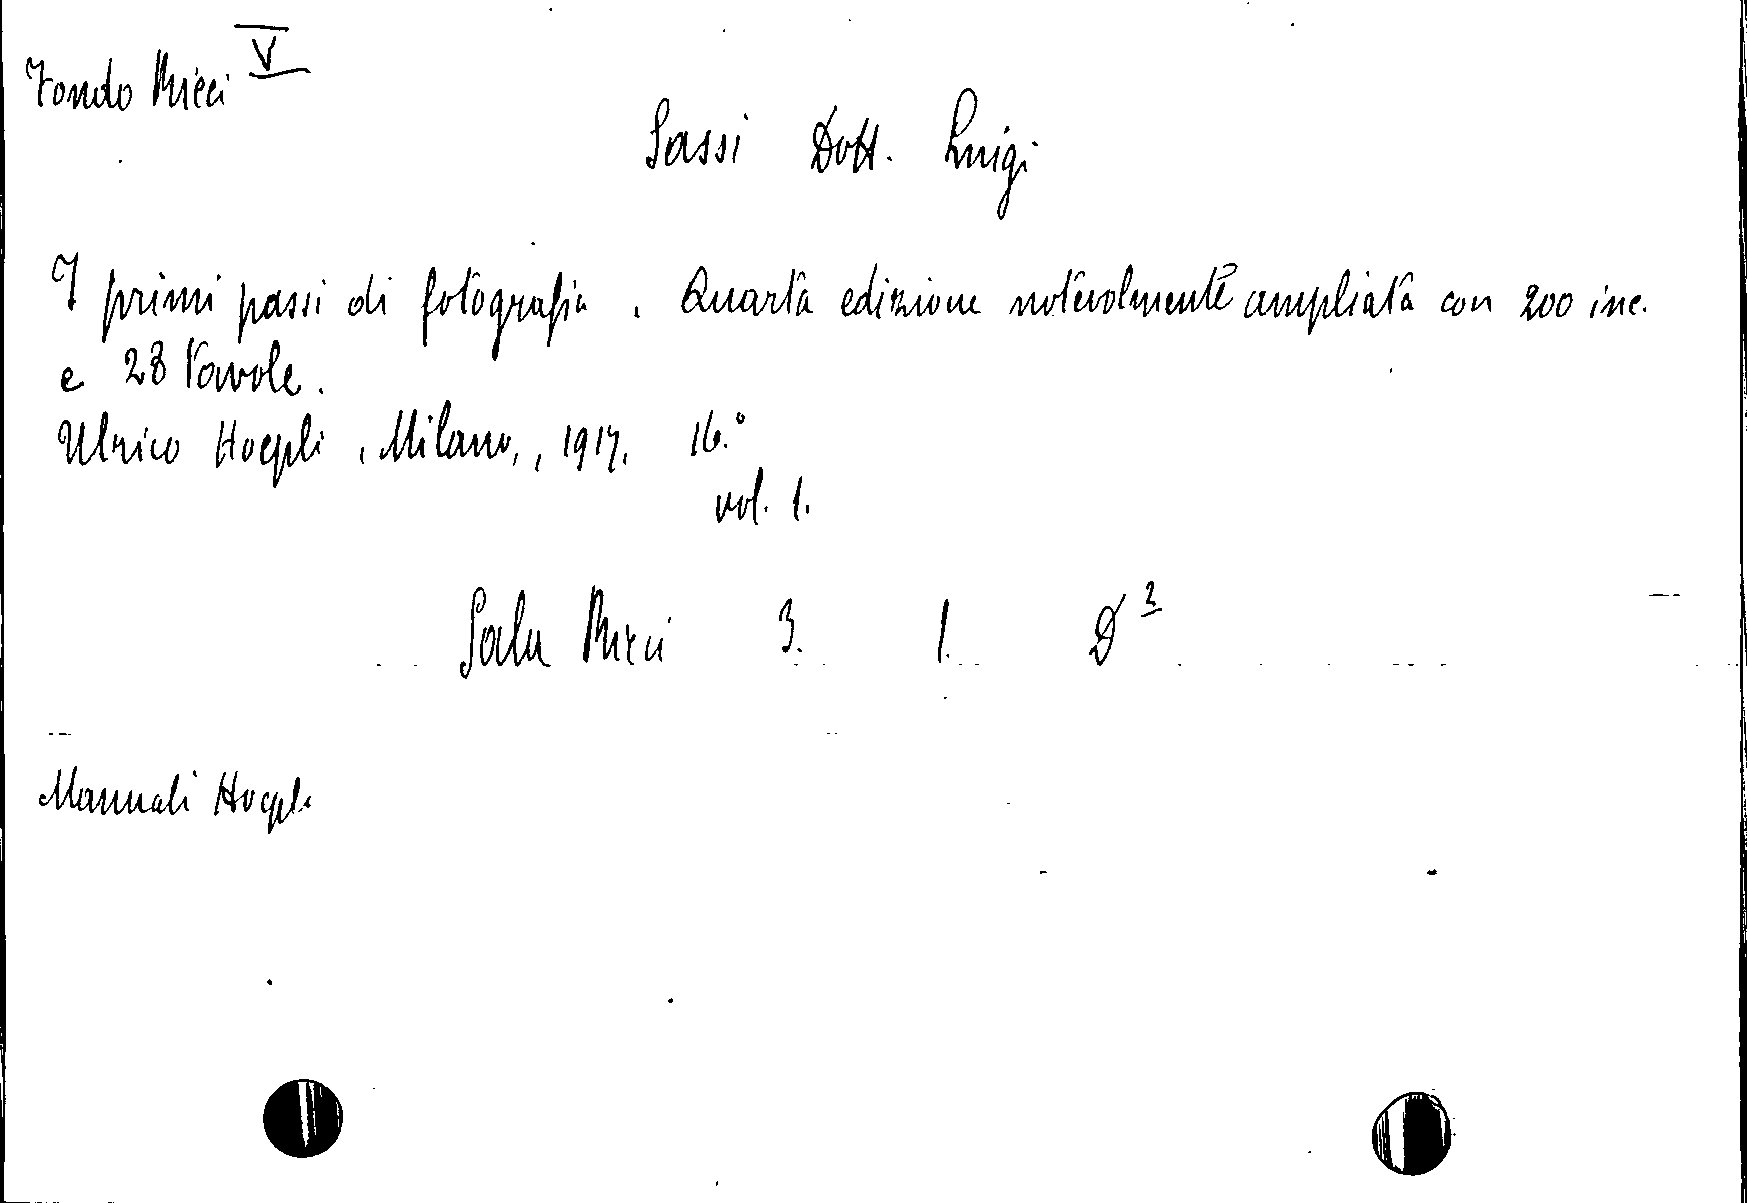 Fondo Ricci V
Sassi Dott. Luigi
I primi passi di fotografia. Quarta edizione notevolmente ampliata con 200 inc.
e 23 tavole.
Ulrico Hoepli, Milano, , 1917. 16.°
vol. 1.
Sala Ricci 3. 1. D 2
Manuali Hoepli